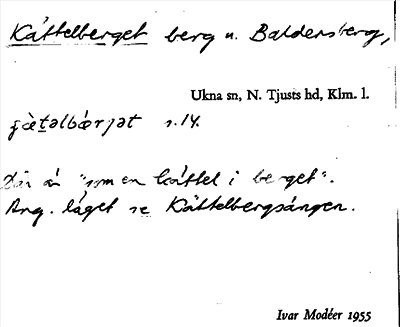 Kättelberget berg n. Baldersberg,
Ukna sn, N. Tjusts hd, Klm. l.
s. 14.
Där är "som en kättel i berget".
Ang. läget se Kättelbergsängen.
Ivar Modéer 1955